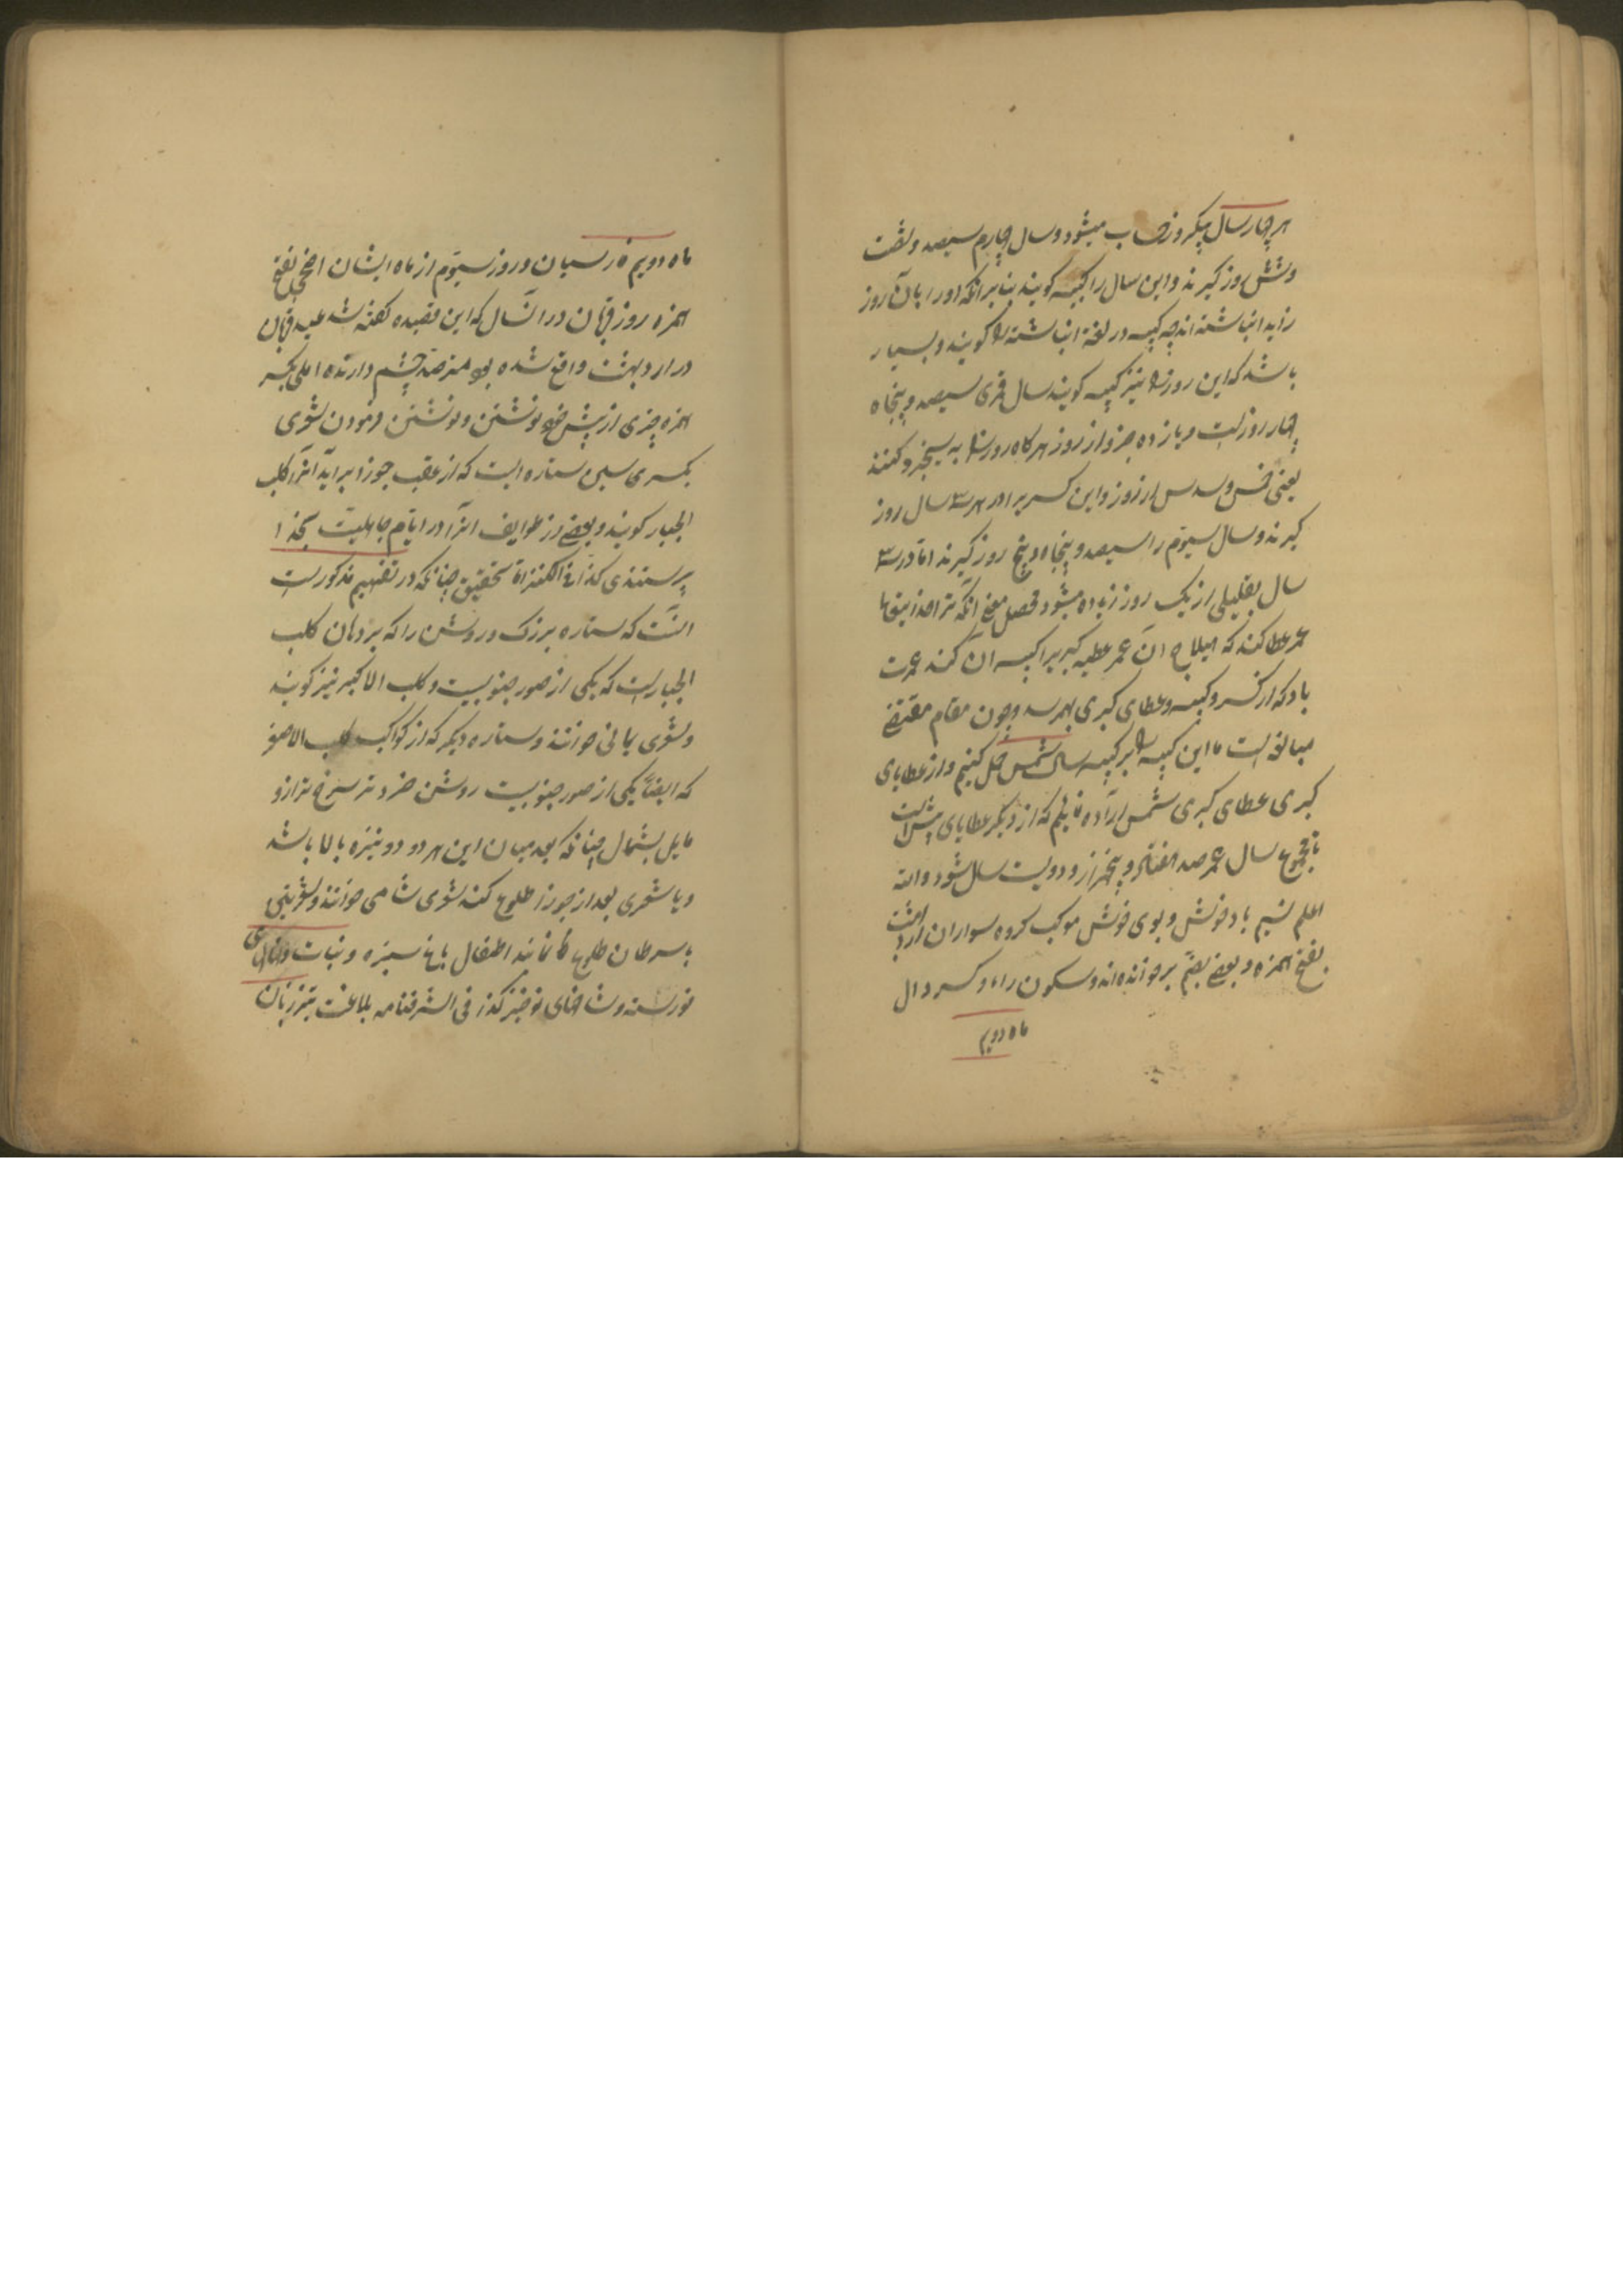 هر چهار سال یکروز حساب میشود و سال چهارم سیصد و شصت
و شش روز گیرند و این سال را کبیسه گویند بنابر آنکه او را بآن روز
زاید انباشته اند چه کبیسه در لغة انباشته را گویند و بسیار
باشد که این روز را نیز کبیسه گویند سال قمری سیصد و پنجاه
چهار روز است و یازده جزو از روز هر گاه روز را به سی جزو کنند
یعنی خمس و سدس از روز و این کسر بر او در هر سه سال روز
گیرند و سال سیوم را سیصد و پنجاه و پنج روز گیرند اما در سه
سال بقلیلی از یک روز زیاده میشود محصل معنی آنکه ترا خدا
عمر عطا کند که هیلاج آن عمر عطیه کبری را کبیسه آن کند عمرت
باد که از کسر و کبیسه و عطای کبری بهم رسد و چون مقام مقتضی
مبالغه است ما این کبیسه را بر کبیسه سال شمس حمل کنیم و از عطایای
کبری عطای کبری شمس اراده نمائیم که از دیگر عطایای بیش است
تا مجموع سال عمر صد هفتاد و پنجهزار و دویست سال شود والله
اعلم نسیم باد خوش و بوی خوش موکب گروه سواران اردیبهشت
بفتح همزه و بعضی بضم بر خوانده اند و سکون راء و کسر دال
ماه دویم
ماه دویم فارسیان و روز سیوم از ماه ایشان اضحی بفتح
همزه روز قربان در آنسال که این قصیده گفته شد عید قربان
در اردیبهشت واقع شده بود مترصد چشم دارنده املی بکسر
همزه چیزی از پیش خود نوشتن و نوشتن فرمودن شعری
بکسر سین ستاره است که از عقب جوزا برآید آنرا کلب
الجبار گویند و بعضی از طوایف آنرا در ایام جاهلیت بخدا
پرستندی کذا فی الکنز اما تحقیق چنانکه در تفهیم مذکور است
آنست که ستاره بزرک و روشن را که بر دهان کلب
الجبار است که یکی از صور جنوبیست و کلب الاکبر نیز گویند
و شعری یمانی خوانند و ستاره دیگر که از کواکب کلب الاصغر
که ایضاً یکی از صور جنوبیست روشن خردتر سرخ تر از و
مایل بشمال چنانکه بعد میان این هر دو دو نیزه بالا باشد
و با شعری بعد از جوزا طلوع کند شعری شامی خوانند و شعریین
با سرطان طلوع نمایند اطفال باغ سبزه و نبات و نهالهای
نورسته و شاخهای نوخیز کذا فی الشرفنامه بلاغت تیززبان